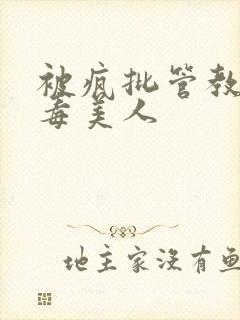 被疯批管教
毒美人
地主家没有鱼